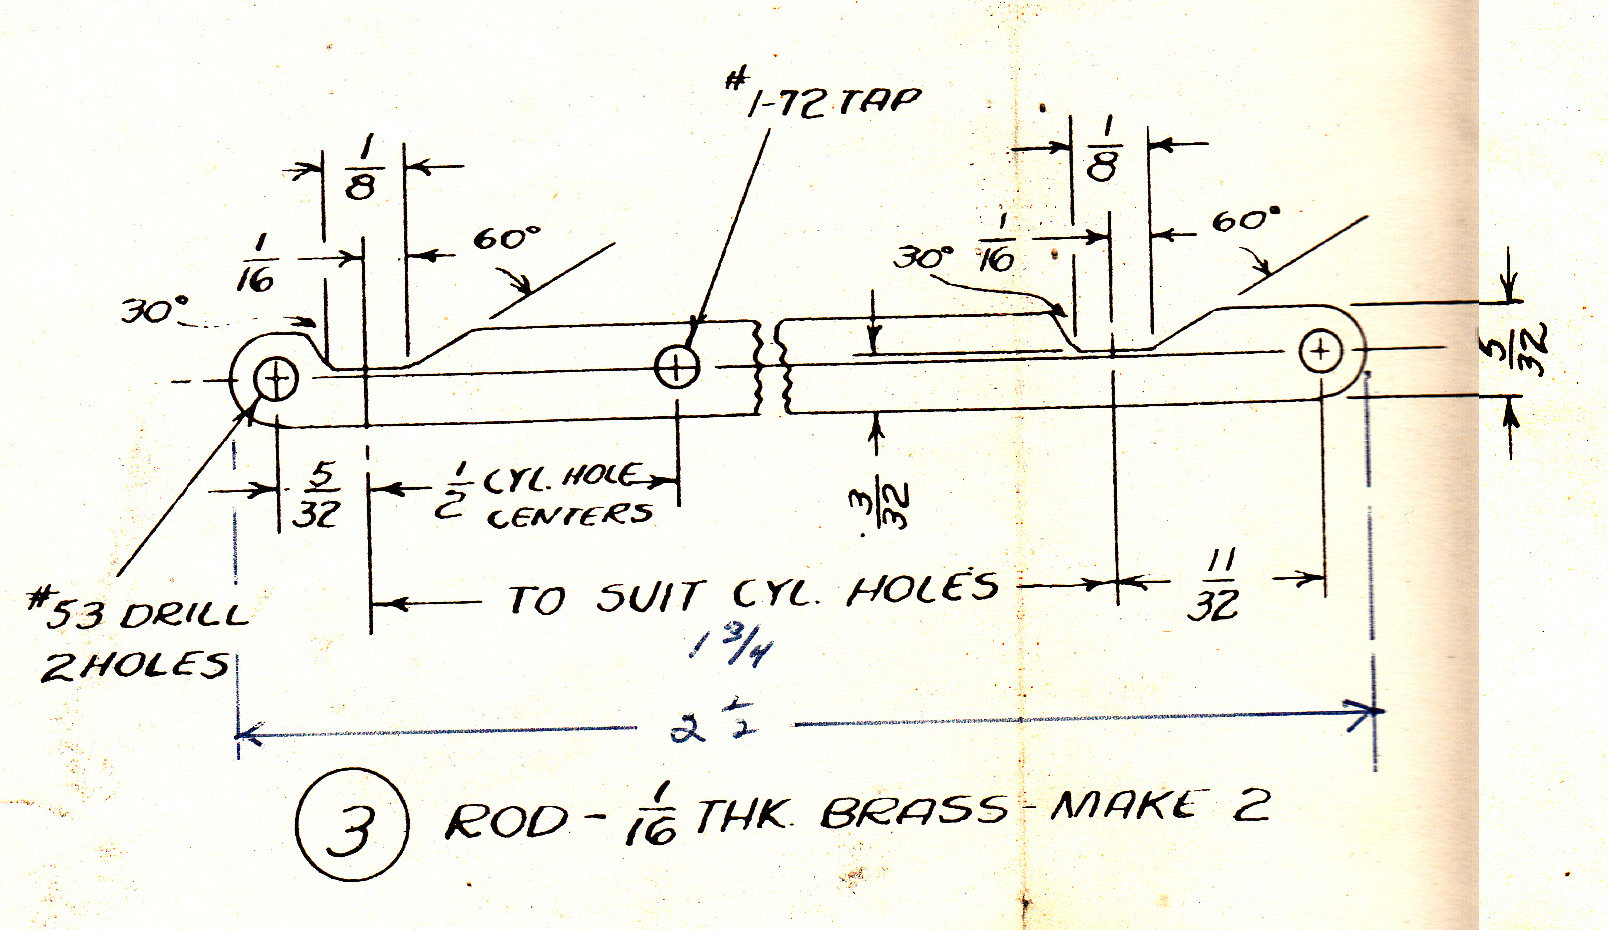 #1-72 TAP
1/8
1/8
1/16
60°
30°
1/16
60°
30°
5/32
5/32
1/2 CYL. HOLE
CENTERS
3/32
#53 DRILL
2 HOLES
TO SUIT CYL. HOLES
11/32
1 3/4
2 1/2
3 ROD - 1/16 THK. BRASS - MAKE 2